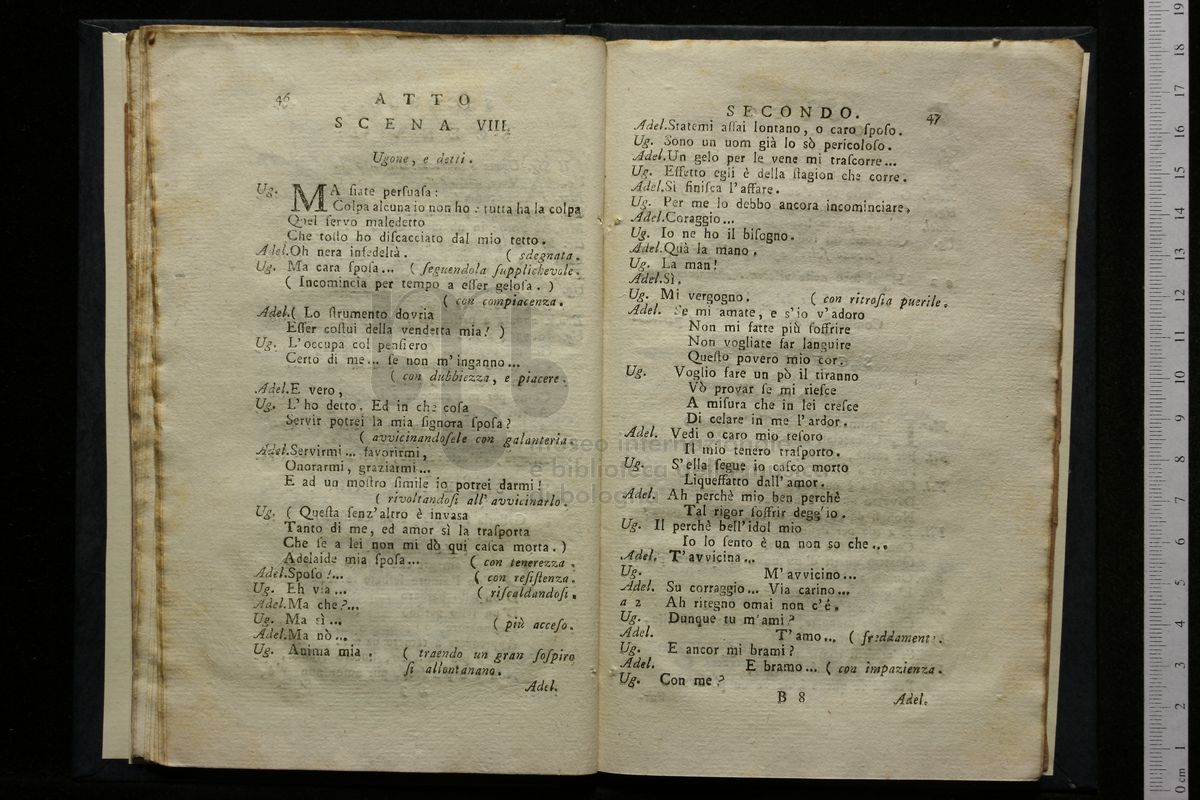 46
ATTO
SCENA VIII.
Ugone, e detti.
Ug. MA ſiate perſuaſa:
Colpa alcuna io non ho: tutta ha la colpa
Quel ſervo maledetto
Che toſto ho diſcacciato dal mio tetto.
Adel.Oh nera infedeltà. ( sdegnata.
Ug. Ma cara ſpoſa... ( ſeguendola ſupplichevole.
( Incomincia per tempo a eſſer geloſa. )
( con compiacenza.
Adel.( Lo ſtrumento dovria
Eſſer coſtui della vendetta mia! )
Ug. L'occupa col penſiero
Certo di me... ſe non m'inganno...
( con dubbiezza, e piacere.
Adel.E vero,
Ug. L'ho detto. Ed in che coſa
Servir potrei la mia ſignora ſpoſa?
( avvicinandoſele con galanteria.
Adel.Servirmi... favorirmi,
Onorarmi, graziarmi...
E ad un moſtro ſimile io potrei darmi!
( rivoltandoſi all'avvicinarlo.
Ug. ( Queſta ſenz'altro è invasa
Tanto di me, ed amor sì la traſporta
Che ſe a lei non mi dò qui caſca morta. )
Adelaide mia ſpoſa... ( con tenerezza.
Adel.Spoſo!... ( con reſiſtenza.
Ug. Eh via... ( riſcaldandoſi.
Adel.Ma che?...
Ug. Ma sì... ( più acceſo.
Adel.Ma nò...
Ug. Anima mia. ( traendo un gran ſoſpiro
ſi allontanano.
Adel.
SECONDO.
47
Adel.Statemi aſſai lontano, o caro ſpoſo.
Ug. Sono un uom già lo sò pericoloſo.
Adel.Un gelo per le vene mi traſcorre...
Ug. Effetto egli è della ſtagion che corre.
Adel.Sì finiſca l'affare.
Ug. Per me lo debbo ancora incominciare,
Adel.Coraggio...
Ug. Io ne ho il biſogno.
Adel.Quà la mano.
Ug. La man!
Adel.Sì.
Ug. Mi vergogno. ( con ritroſia puerile.
Adel. Se mi amate, e s'io v'adoro
Non mi fatte più ſoffrire
Non vogliate far languire
Queſto povero mio cor.
Ug. Voglio fare un pò il tiranno
Vò provar ſe mi rieſce
A miſura che in lei creſce
Di celare in me l'ardor.
Adel. Vedi o caro mio teſoro
Il mio tenero traſporto.
Ug. S'ella ſegue io caſco morto
Liquefatto dall'amor.
Adel. Ah perchè mio ben perchè
Tal rigor ſoffrir degg'io.
Ug. Il perchè bell'idol mio
Io lo ſento è un non so che...
Adel. T'avvicina...
Ug. M'avvicino...
Adel. Su corraggio... Via carino...
a 2 Ah ritegno omai non c'é.
Ug. Dunque tu m'ami?
Adel. T'amo... ( freddamente.
Ug. E ancor mi brami?
Adel. E bramo... ( con impazienza.
Ug. Con me?
B 8
Adel.
museo internazionale
e biblioteca della musica
bologna
0 cm 1 2 3 4 5 6 7 8 9 10 11 12 13 14 15 16 17 18 19